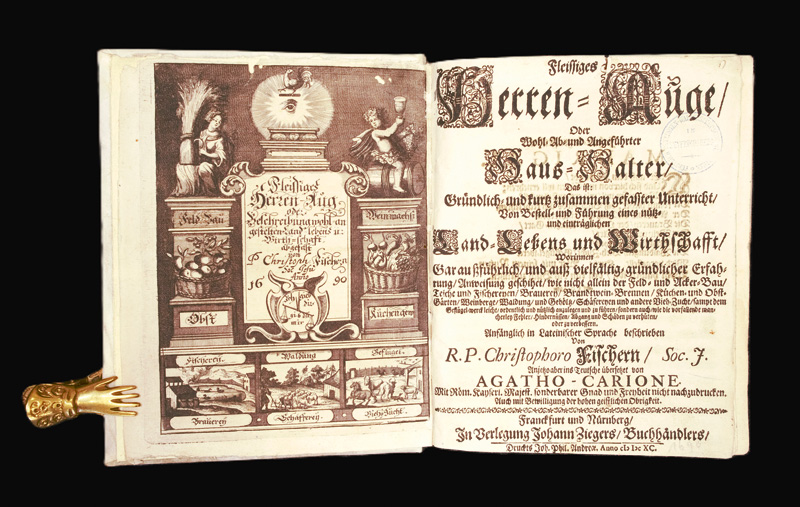 Fleissiges
Herren-Aug
oder
Beschreibung wohl an
gestelten Land lebens u:
Wirth-schafft
abgefast
von
P Christoph Fischern
Soc Jesu
Anno
1690
Feld Bau
Weinwachs
Obst
Kuchengew
Fischereÿ.
Waldung
Geflügel.
Brauereÿ
Schäffereÿ.
Vieh-Zucht
Fleissiges
Herren-Auge/
Oder
Wohl-Ab- und Angeführter
Haus-Halter/
Das ist:
Gründlich- und kurtz zusammen gefasster Unterricht/
Von Bestell- und Führung eines nütz-
und einträglichen
Land-Lebens und Wirthschafft/
Worinnen
Gar ausführlich/ und auß vielfältig-gründlicher Erfah-
rung/ Anweisung geschihet/ wie nicht allein der Feld- und Acker-Bau/
Teiche und Fischereyen/ Brauerey/ Brandtwein-Brennen/ Küchen- und Obst-
Gärten/ Weinberge/ Waldung/ und Gehöltz/ Schäfereyen und andere Vieh-Zucht/ sampt dem
Geflügel-werck leicht/ ordentlich und nützlich anzulegen und zu führen/ sondern auch/ wie die vorfallende man-
cherley Fehler/ Hindernüssen/ Abgang und Schäden zu verhüten/
oder zu verbessern.
Anfänglich in Lateinischer Sprache beschrieben
Von
R. P. Christophoro Fischern/ Soc. J.
Anjetzo aber ins Teutsche übersetzet von
AGATHO-CARIONE.
Mit Röm. Kayserl. Majest. sonderbarer Gnad und Freyheit nicht nachzudrucken.
Auch mit Bewilligung der hohen geistlichen Obrigkeit.
Franckfurt und Nürnberg/
In Verlegung Johann Ziegers/ Buchhändlers/
Druckts Joh. Phil. Andreæ. Anno cIↄ Iↄc XC.